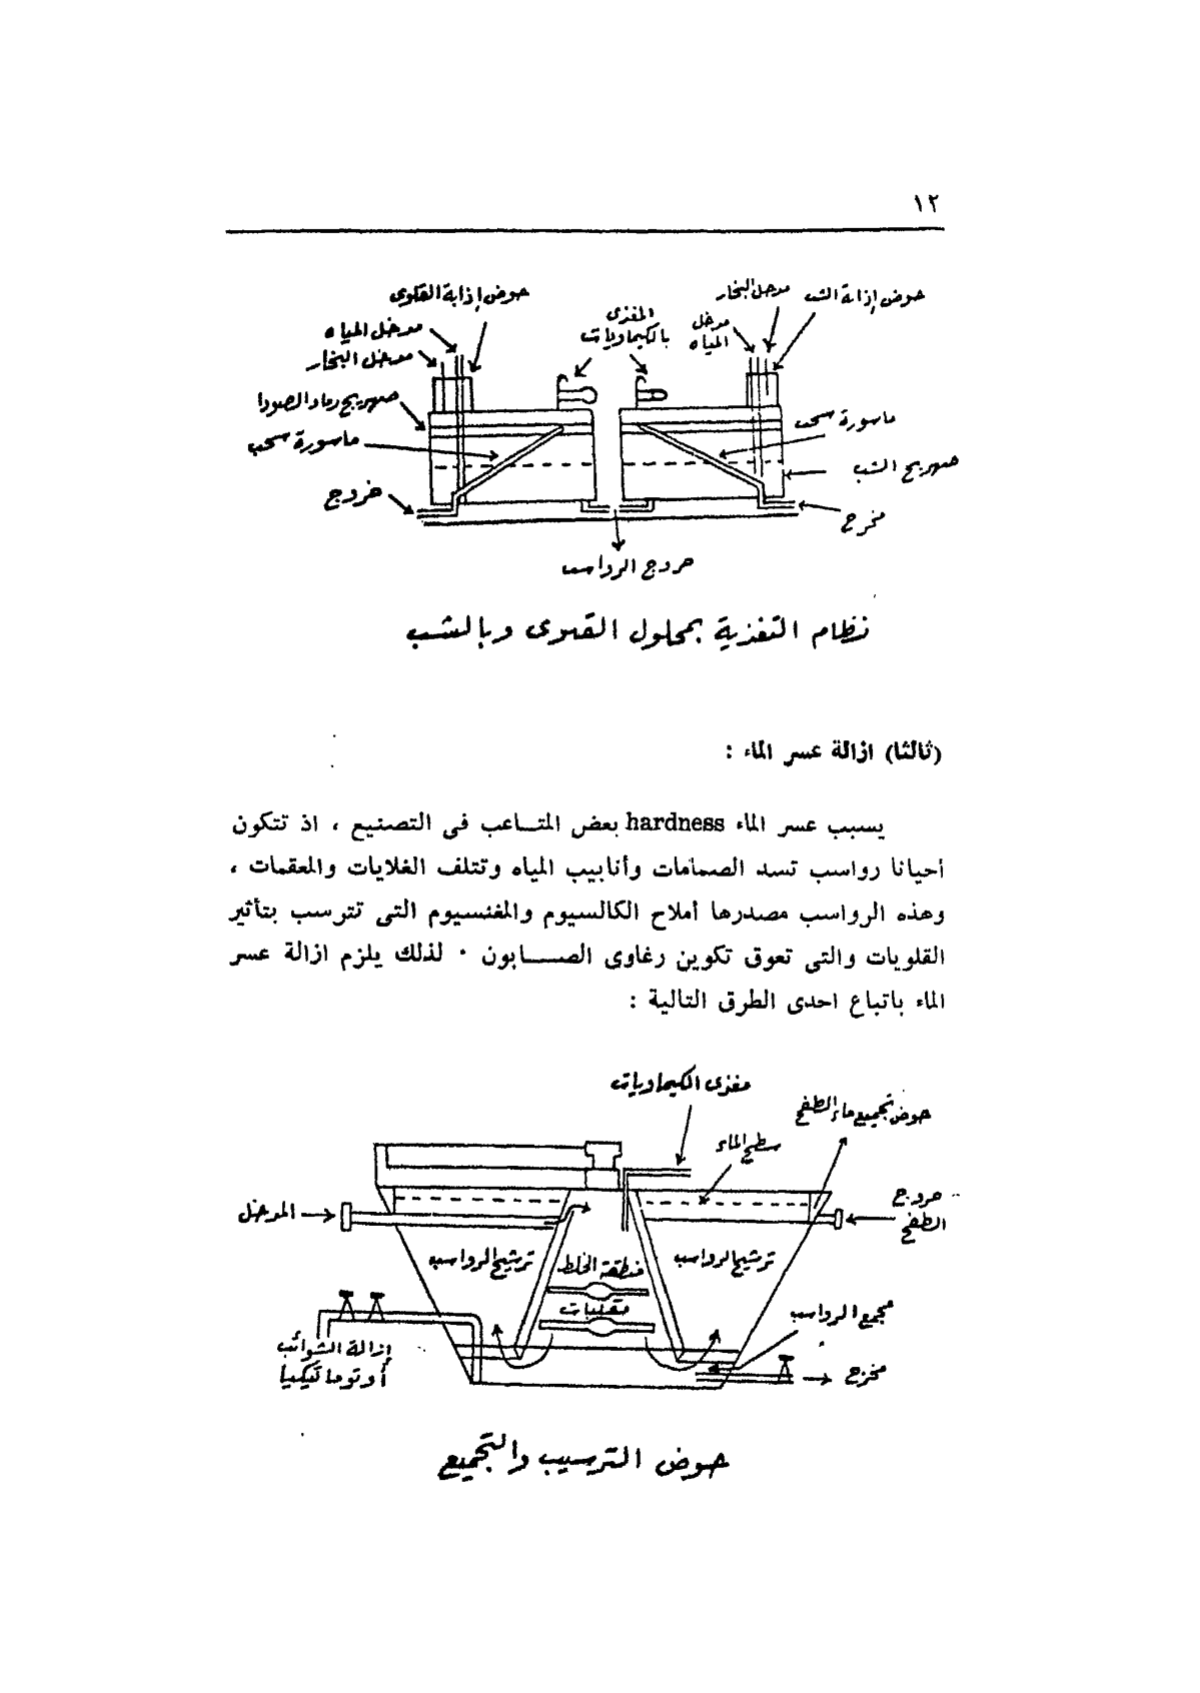 ١٢
حوض إذابة القلوى
مدخل المياه
مدخل البخار
صهريج رماد الصودا
ماسورة سحب
خروج
المغذى
بالكيماويات
مدخل البخار
حوض إذابة الشب
مدخل
المياه
ماسورة سحب
صهريج الشب
مخرج
خروج الرواسب
نظام التغذية بمحلول القلوى وبالشب
(ثالثا) ازالة عسر الماء :
يسبب عسر الماء hardness بعض المتـاعب فى التصنيع ، اذ تتكون
أحيانا رواسب تسد الصمامات وأنابيب المياه وتتلف الغلايات والمعقمات ،
وهذه الرواسب مصدرها أملاح الكالسيوم والمغنسيوم التى تترسب بتأثير
القلويات والتى تعوق تكوين رغاوى الصـــابون ٠ لذلك يلزم ازالة عسر
الماء باتباع احدى الطرق التالية :
مغذى الكيماويات
حوض تجميع ماء الطفح
سطح الماء
خروج
الطفح
المدخل
ترشيح الرواسب
منطقة الخلط
ترشيح الرواسب
مقلبات
مجمع الرواسب
إزالة الشوائب
أوتوماتيكيا
مخرج
حوض الترسيب والتجميع